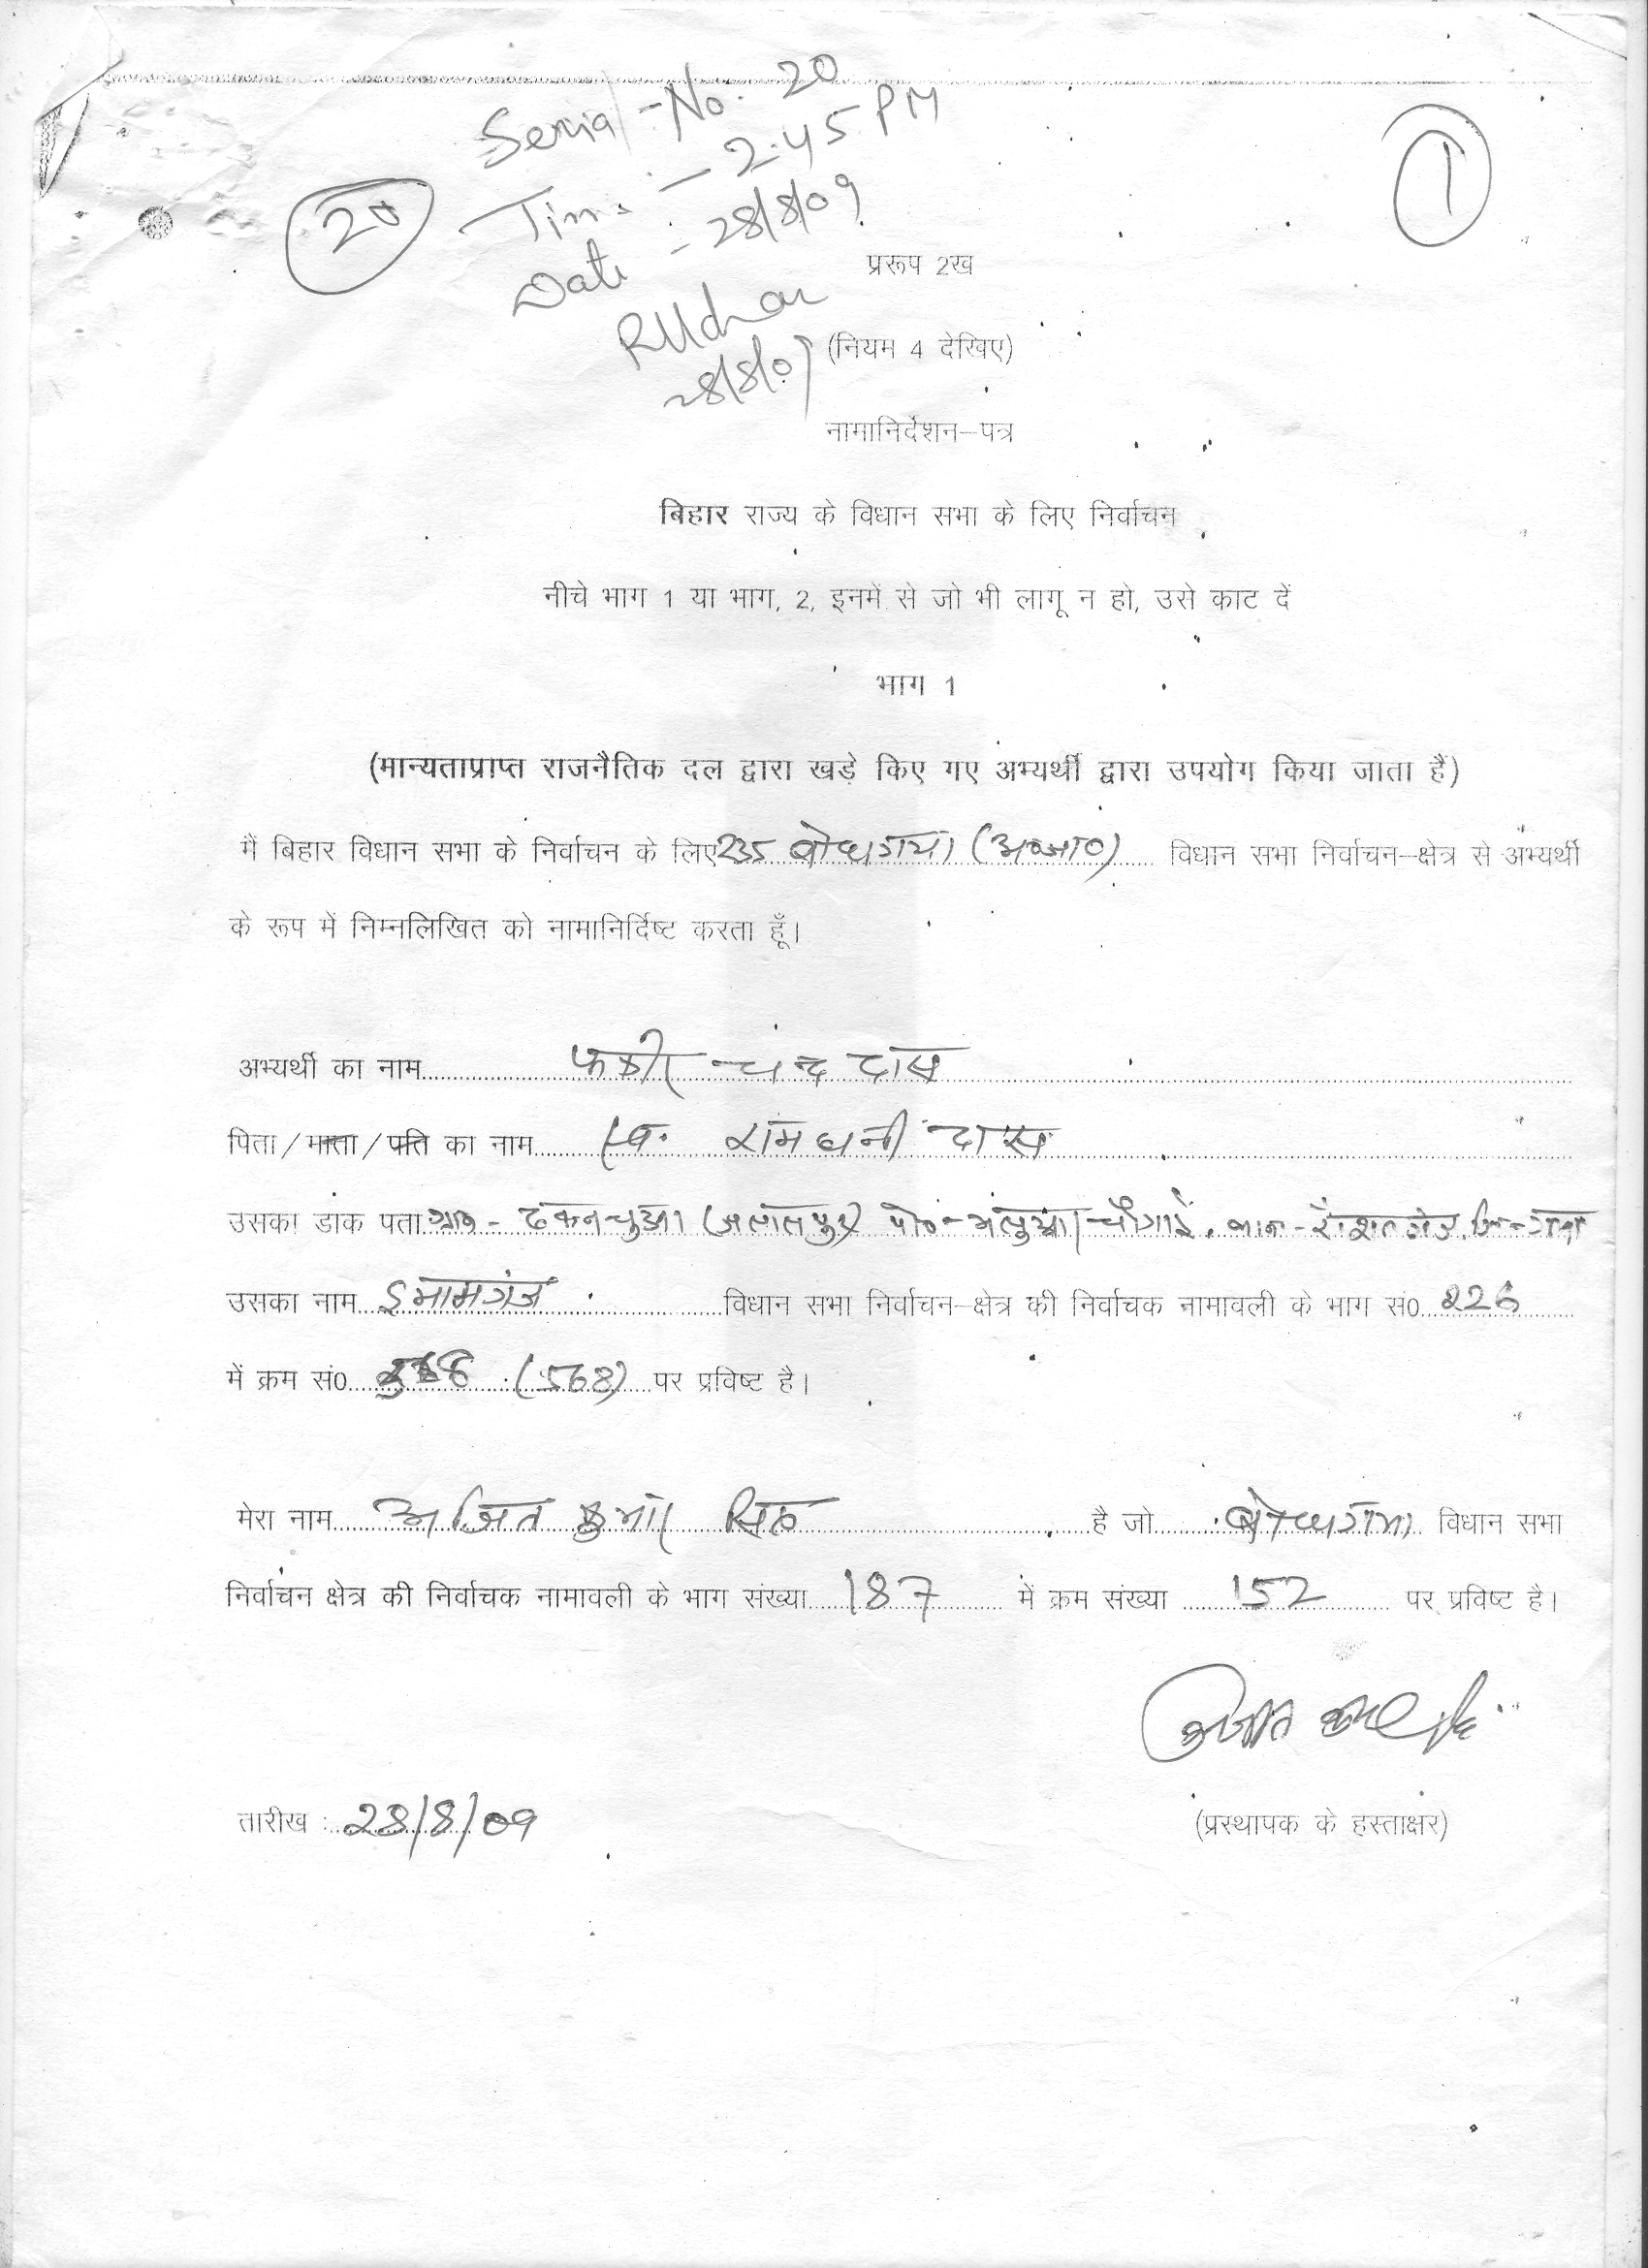 Serial-No. 20
Time - 2:45 PM
Date - 28/8/09
20
1
28/8/09
प्ररूप 2ख
(नियम 4 देखिए)
नामानिर्देशन–पत्र
बिहार राज्य के विधान सभा के लिए निर्वाचन
नीचे भाग 1 या भाग, 2, इनमें से जो भी लागू न हो, उसे काट दें
भाग 1
(मान्यताप्राप्त राजनैतिक दल द्वारा खड़े किए गए अभ्यर्थी द्वारा उपयोग किया जाता है)
मैं बिहार विधान सभा के निर्वाचन के लिए 235 बोधगया (अ०जा०) विधान सभा निर्वाचन–क्षेत्र से अभ्यर्थी
के रूप में निम्नलिखित को नामानिर्दिष्ट करता हूँ।
अभ्यर्थी का नाम चन्द्र दास
पिता/माता/पति का नाम स्व. रामधनी दास
उसका डाक पता ग्राम -
उसका नाम इमामगंज विधान सभा निर्वाचन–क्षेत्र की निर्वाचक नामावली के भाग सं0 226
में क्रम सं0 568 (568) पर प्रविष्ट है।
मेरा नाम अजित कुमार सिंह है जो बोधगया विधान सभा
निर्वाचन क्षेत्र की निर्वाचक नामावली के भाग संख्या 187 में क्रम संख्या 152 पर प्रविष्ट है।
तारीख : 28/8/09
(प्रस्थापक के हस्ताक्षर)